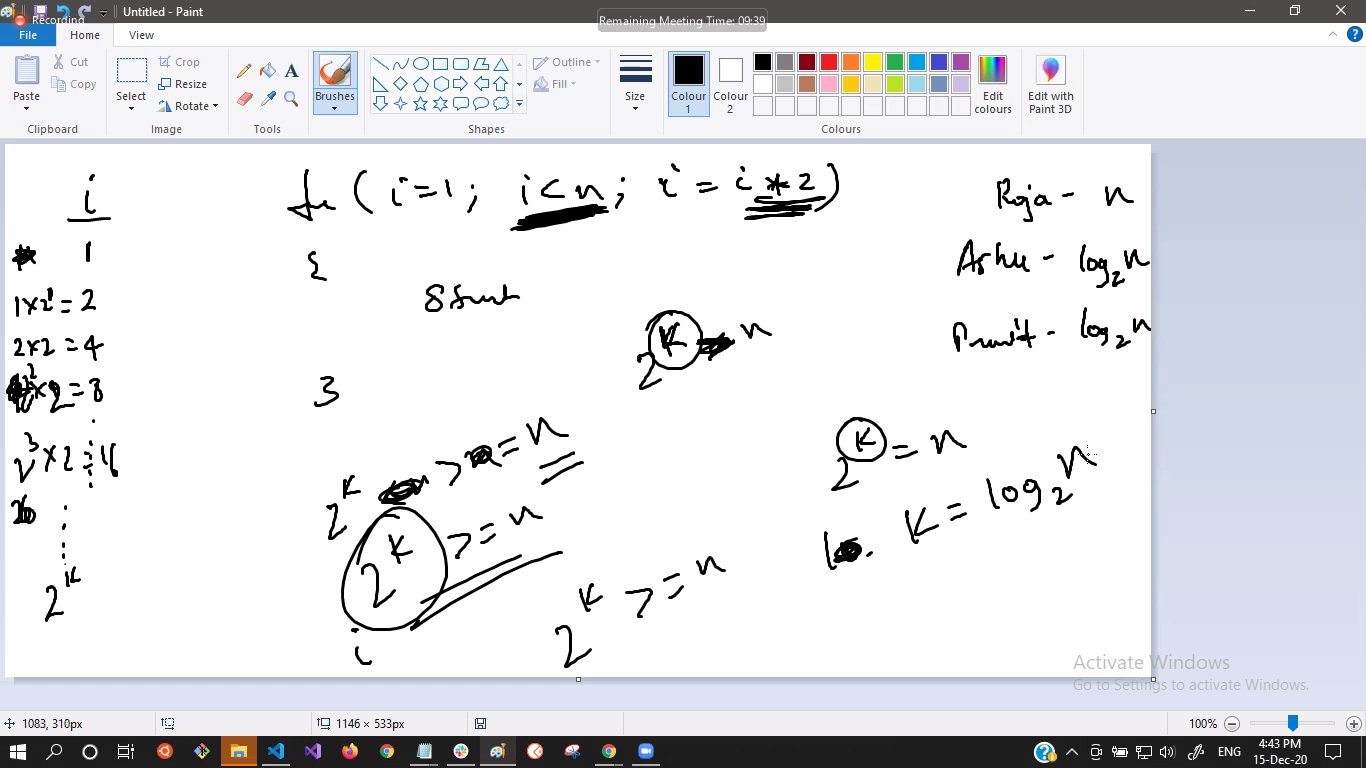 Recording
Untitled - Paint
Remaining Meeting Time: 09:39
File Home View
Paste
Cut
Copy
Clipboard
Select
Crop
Resize
Rotate
Image
Tools
Brushes
Shapes
Outline
Fill
Size
Colour 1
Colour 2
Edit colours
Edit with Paint 3D
Colours
i
1
1×2¹ = 2
2×2 = 4
2² × 2 = 8
2³ × 2 = 16
2^K
for ( i=1; i<n; i = i*2)
{
Stmt
}
2^K n
2^K >= n
2^K >= n
i
2^K >= n
2^K = n
K = log₂n
Roja - n
Ashu - log₂n
log₂n
Activate Windows
Go to Settings to activate Windows.
1083, 310px
1146 × 533px
100%
ENG
4:43 PM
15-Dec-20